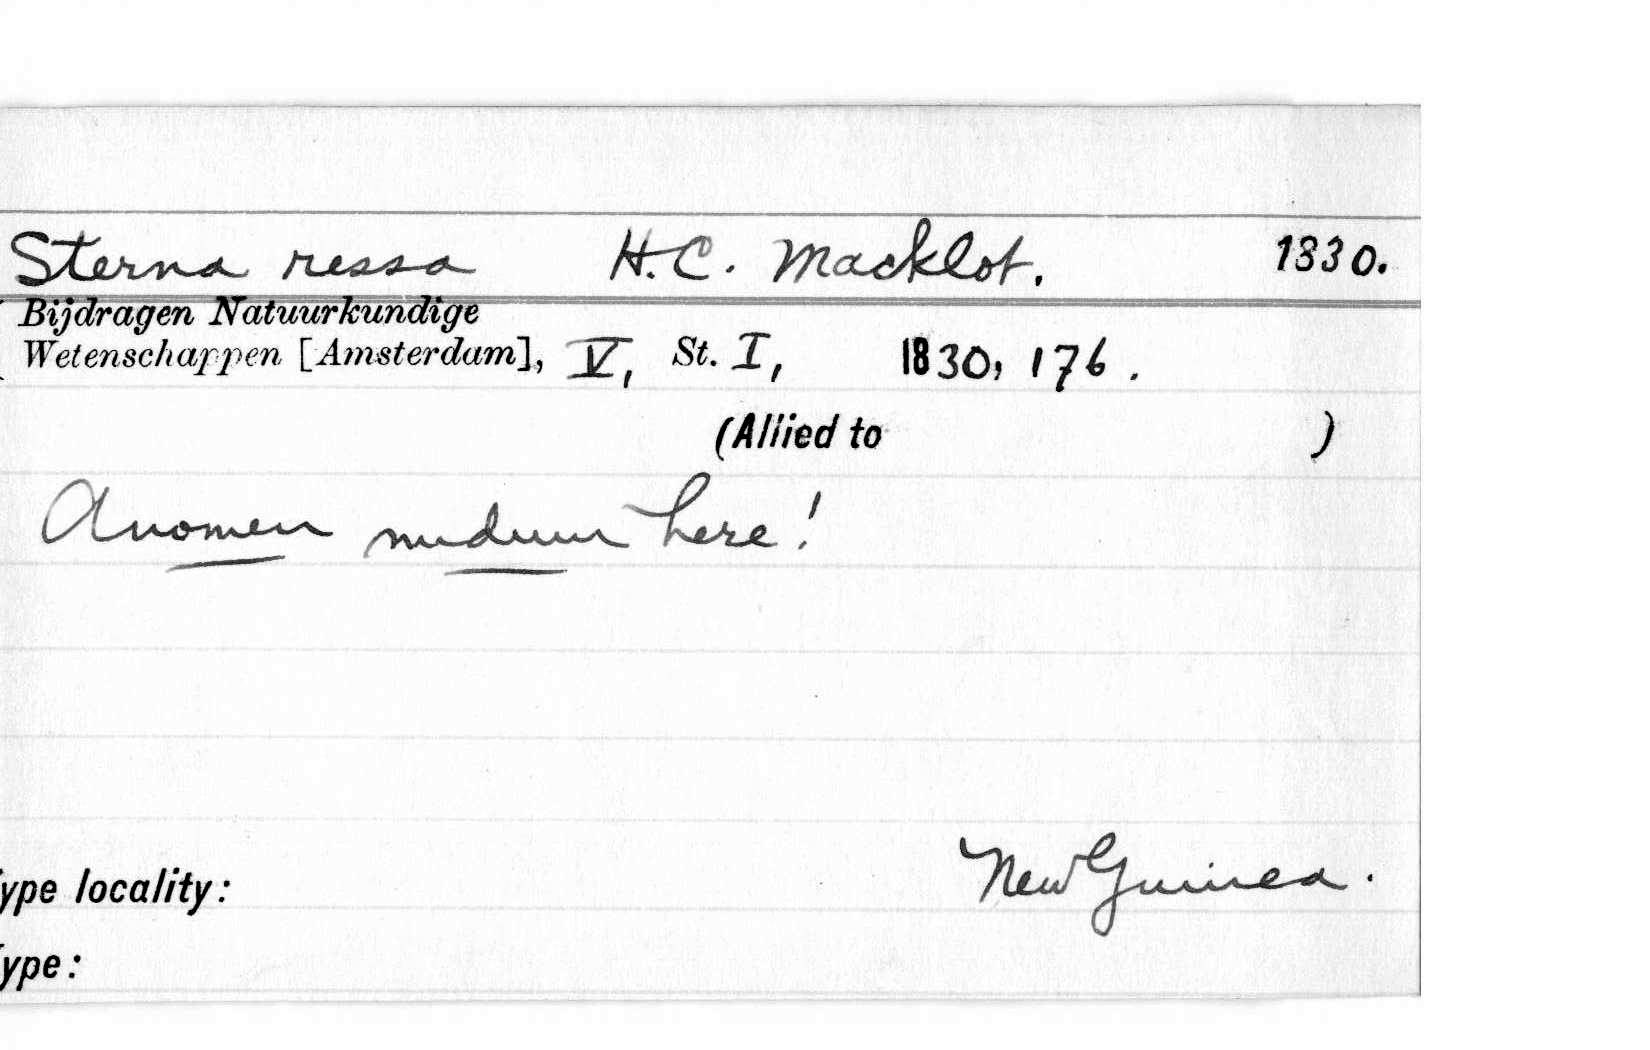 Sterna ressa H.C. Macklot. 1830.
Bijdragen Natuurkundige
Wetenschappen [Amsterdam], V, St. I, 1830, 176.
(Allied to )
A nomen nudum here!
New Guinea.
ype locality:
ype: